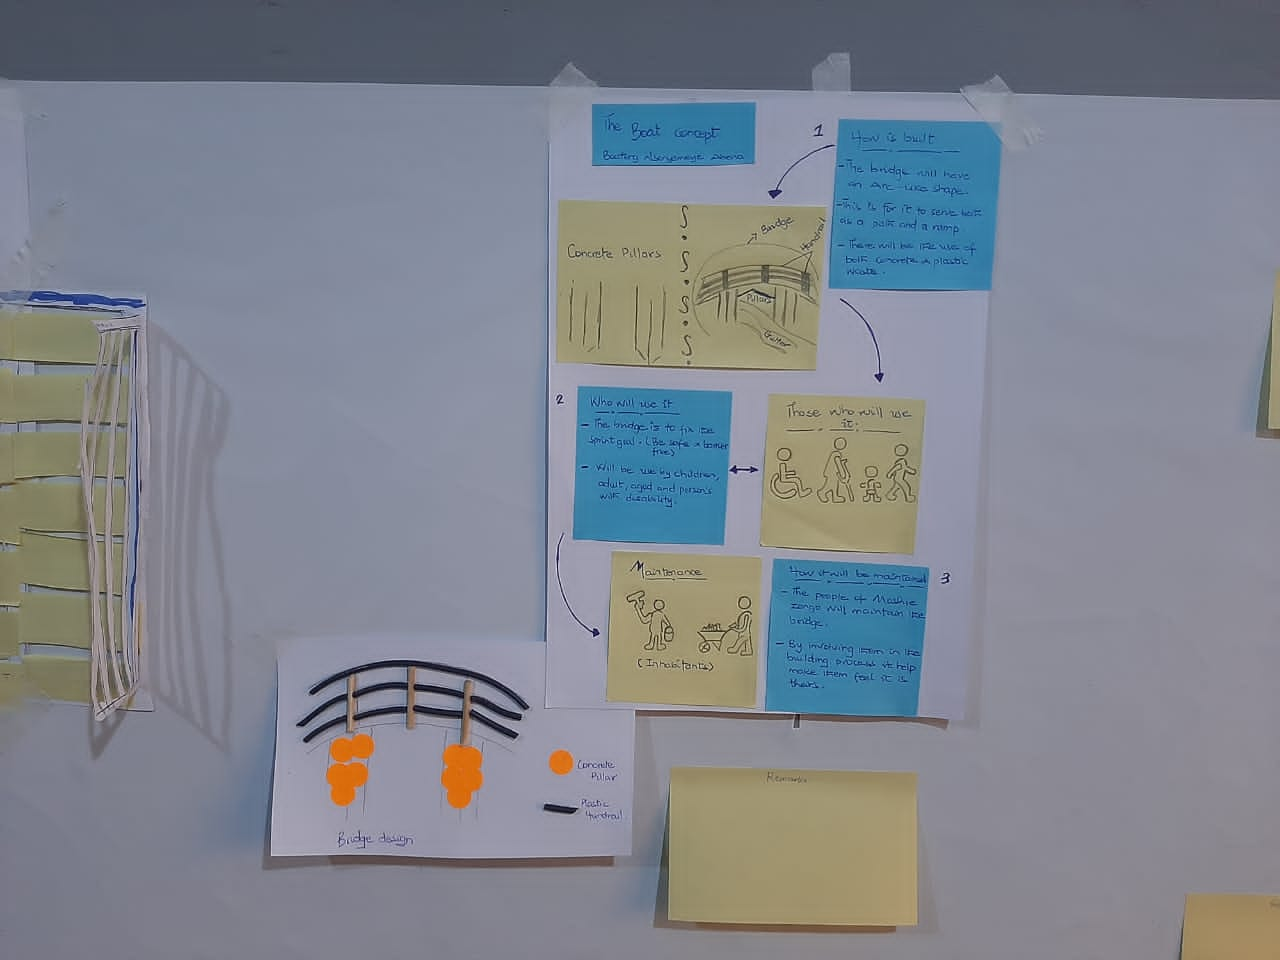 The Boat Concept
1
How is built
-The bridge will have
an Arc-like shape.
-This is for it to serve both
as a path and a ramp
- There will be the use of
both concrete & plastic
waste.
Concrete Pillars
Bridge
Handrail
Pillars
Gutter
2
Who will use it
- The bridge is to fix the
sprint goal. (Be safe & barrier
free)
- Will be use by children,
adult, aged and person's
with disability.
Those who will use
it:
Maintenance
(Inhabitants)
How it will be maintained
3
- The people of
zongo will maintain the
bridge.
- By involving them in the
building process it help
make them feel it is
theirs.
Concrete
Pillar
Plastic
Handrail
Bridge design
Remarks